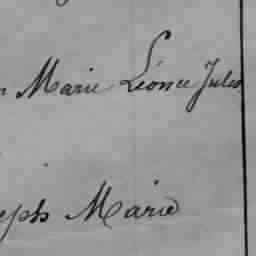 Marie Léonce Jules
eph Marie